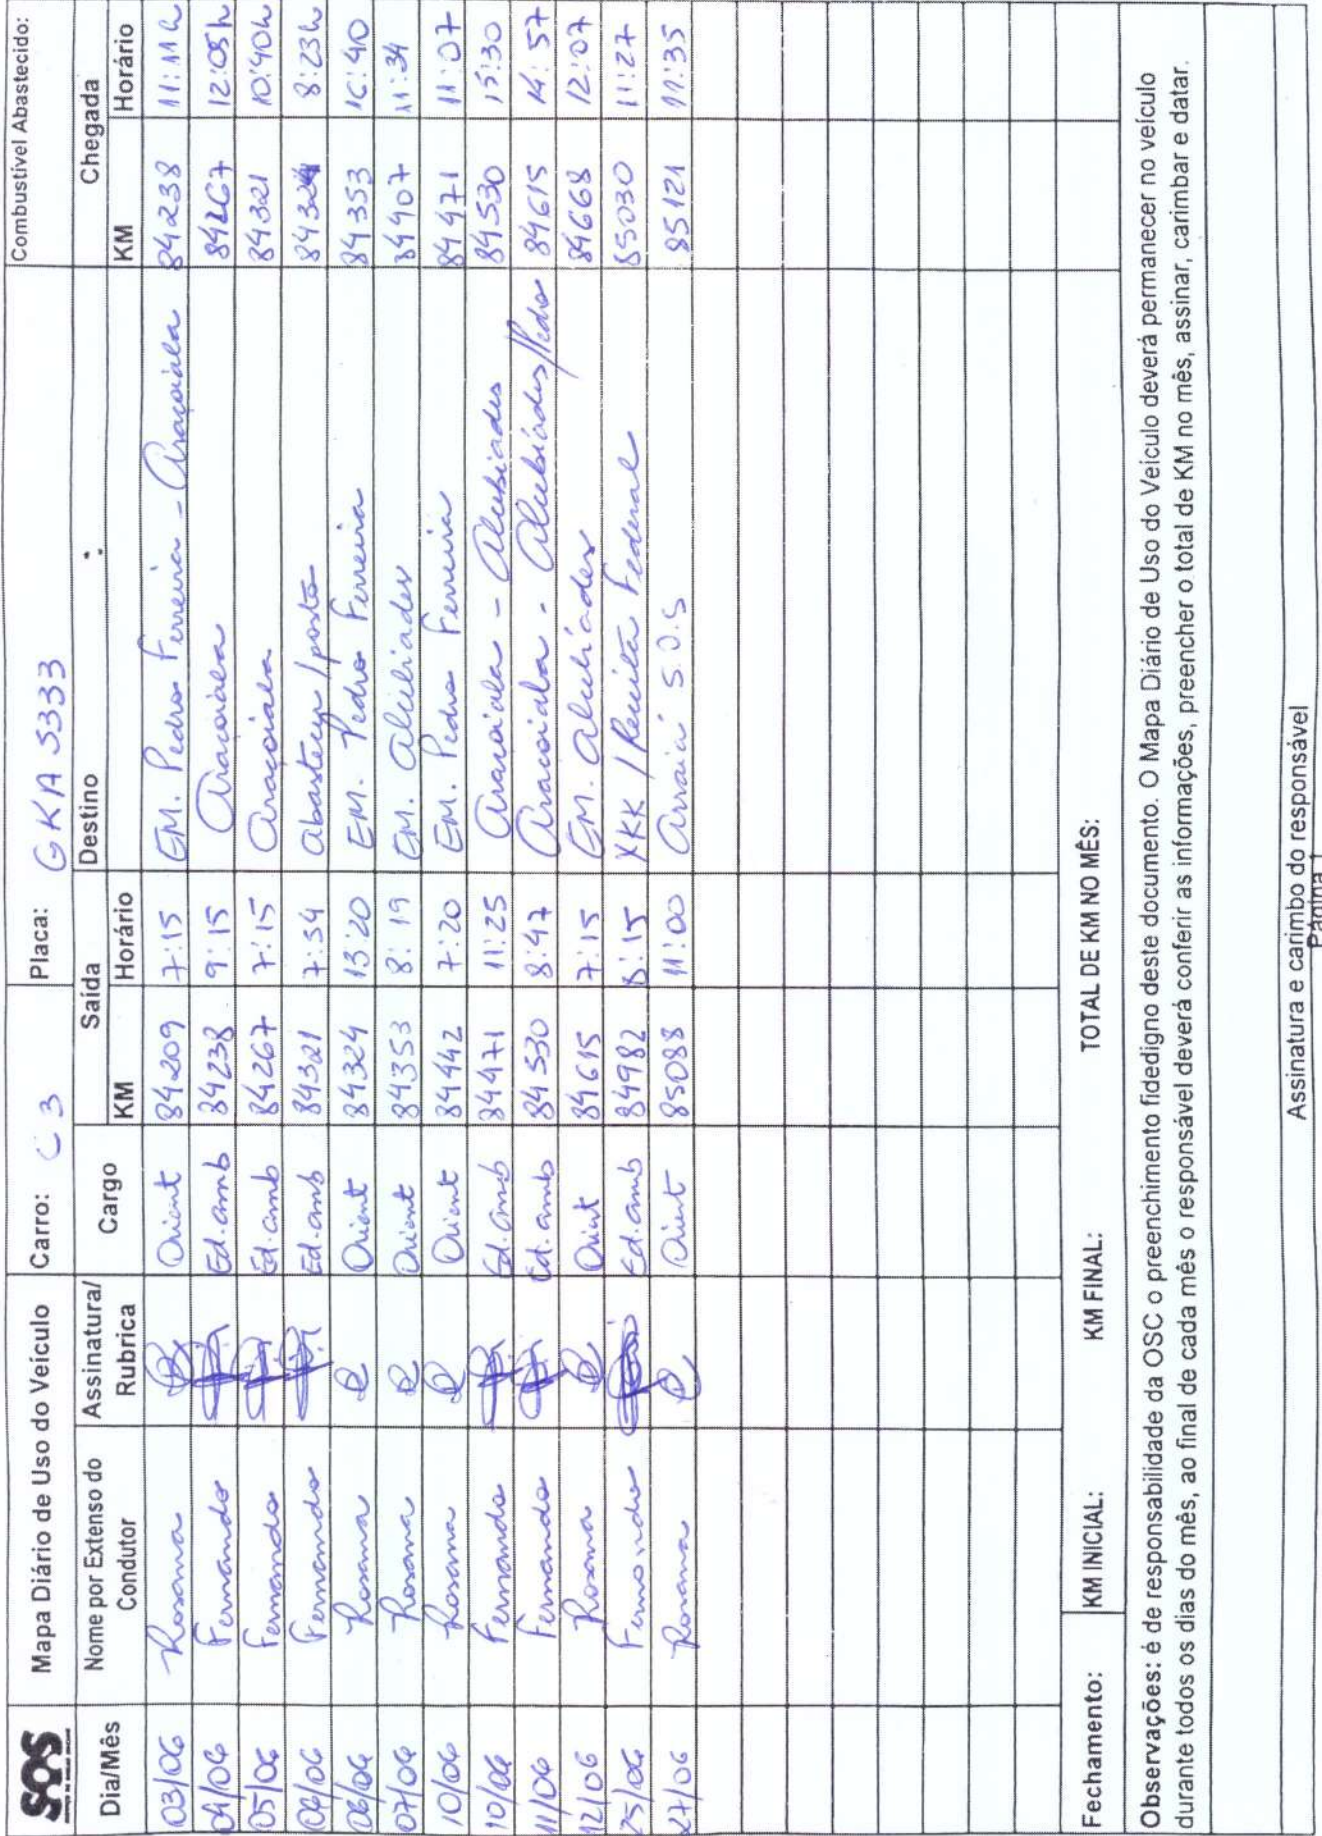 SOS
Mapa Diário de Uso do Veículo Carro: C3 Placa: GKA 5333 Combustível Abastecido:
Dia/Mês Nome por Extenso do Condutor Assinatura/Rubrica Cargo Saída Destino Chegada
KM Horário KM Horário
03/06 Rosana Orient 84209 7:15 EM. Pedro Ferreira - Araçoiaba 84238 11:11h
04/06 Fernando Ed. amb 84238 9:15 Araçoiaba 84267 12:05h
05/06 Fernando Ed. amb 84267 7:15 Araçoiaba 84321 10:40h
06/06 Fernando Ed. amb 84321 7:54 abastecer/posto 84324 8:23h
06/06 Rosana Orient 84324 13:20 EM. Pedro Ferreira 84353 16:40
07/06 Rosana Orient 84353 8:19 EM. Alcibiades 84407 11:34
10/06 Rosana Orient 84442 7:20 EM. Pedro Ferreira 84471 11:07
10/06 Fernando Ed. amb 84471 11:25 Araçoiaba - Alcibiades 84530 15:30
11/06 Fernando Ed. amb 84530 8:47 Araçoiaba - Alcibiades/Pedro 84615 14:57
12/06 Rosana Orient 84615 7:15 EM. Alcibiades 84668 12:07
25/06 Fernando Ed. amb 84982 8:15 XKK / Receita Federal 85030 11:27
27/06 Rosana Orient 85088 11:00 Arraiá S.O.S 85121 17:35
Fechamento: KM INICIAL: KM FINAL: TOTAL DE KM NO MÊS:
Observações: é de responsabilidade da OSC o preenchimento fidedigno deste documento. O Mapa Diário de Uso do Veículo deverá permanecer no veículo
durante todos os dias do mês, ao final de cada mês o responsável deverá conferir as informações, preencher o total de KM no mês, assinar, carimbar e datar.
Assinatura e carimbo do responsável
Página 1